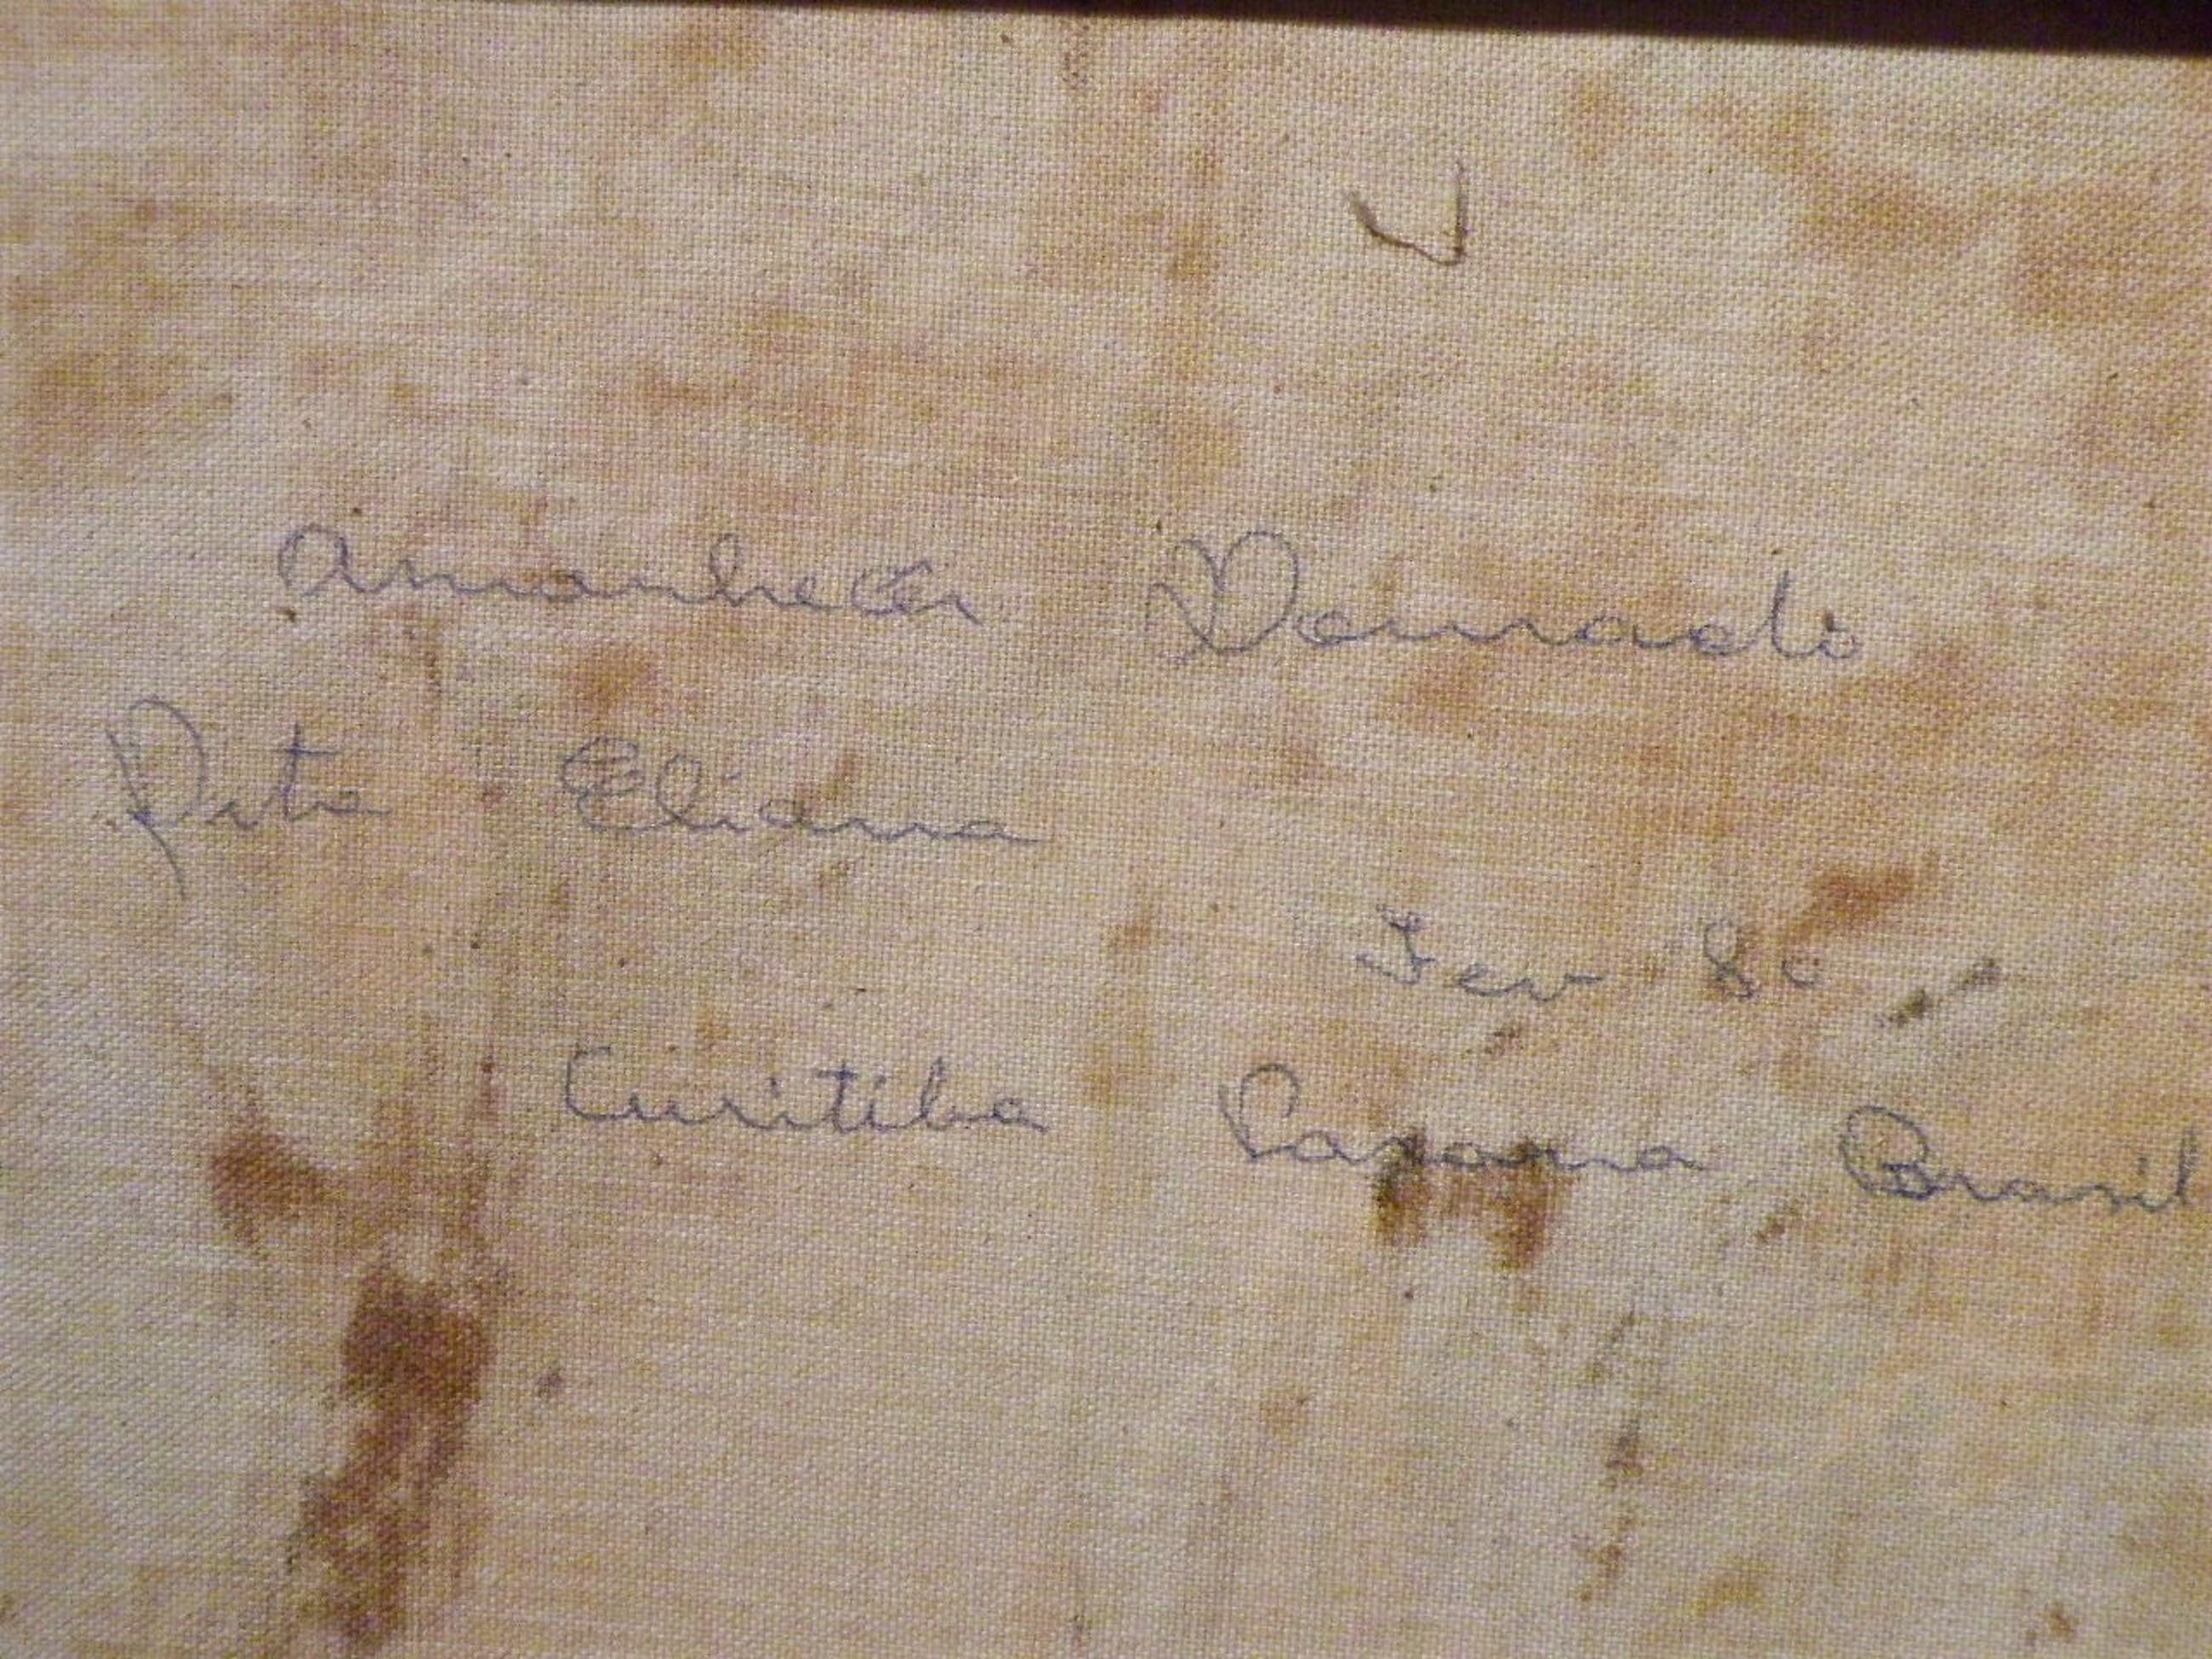 Amanhecer Dourado
Rita Eliana
Fev 80
Curitiba Parana Brasil